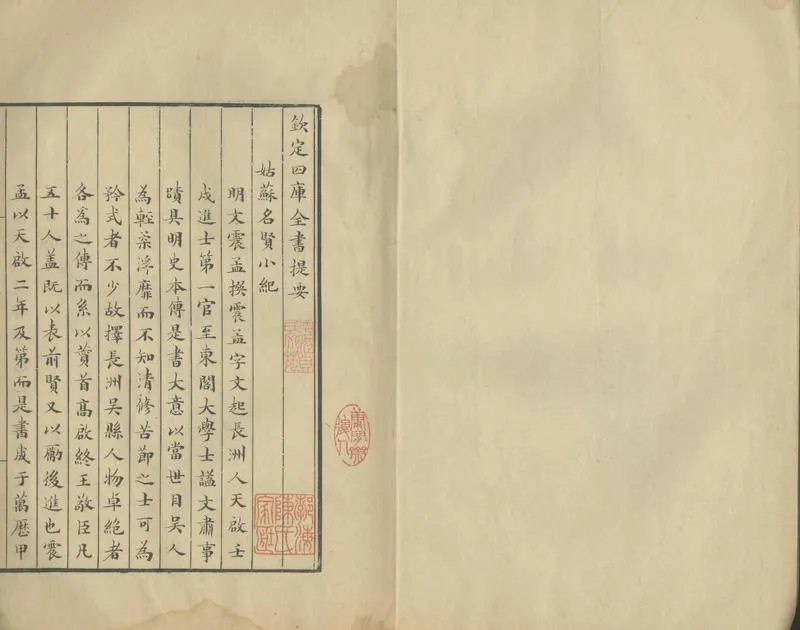 欽定四庫全書提要
姑蘇名賢小紀
明文震孟撰震孟字文起長洲人天啟壬
戍進士第一官至東閣大學士謚文肅事
蹟具明史本傳是書大意以當世目吳人
為輕柔浮靡而不知清修苦節之士可為
矜式者不少故擇長洲吳縣人物卓絶者
各為之傳而系以贊首高啟終王敬臣凡
五十人盖既以表前賢又以勵後進也震
孟以天啟二年及第而是書成于萬歷甲